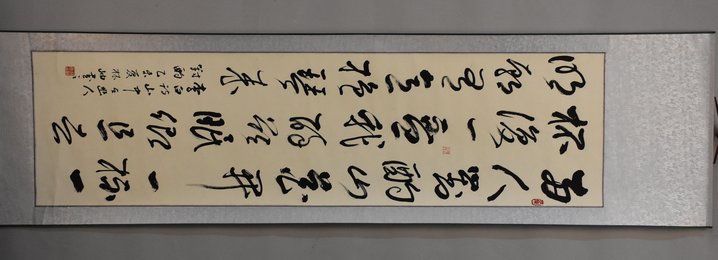 两人對酌山花開一杯一
杯復一杯我醉欲眠卿且去
明朝有意抱琴来
李白詩山中与幽人
對酌乙未夏書